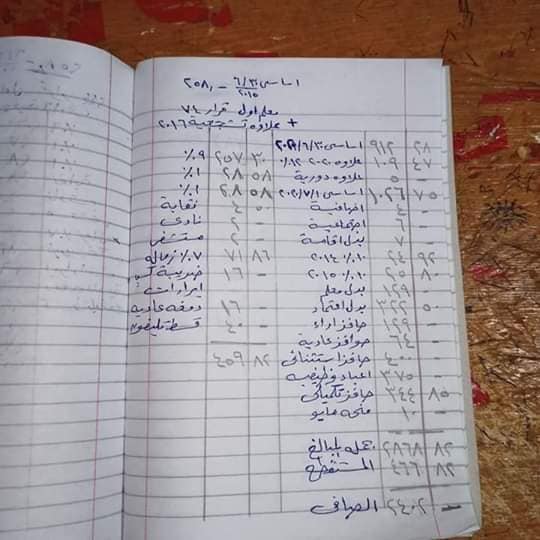 اساسى ٦/٣٠/٢٠١٥ -٢٥٨٫
معلم اول قرار ٧٤
+ علاوة تشجيعية ٢٠١٦
٢٨ ٩١٢ اساسى ٦/٣٠/ ٣٠ ٢٥٧ ٩٪
٤٧ ١٠٩ علاوه ٢٠٢٠ ١٢٪ ٥٨ ٢٨ ١٪
- ٥ علاوه دورية ٥٨ ٢٨ ١٪
٧٥ ١٠٢٦ اساسى ٧/١/٢٠٢٠ ٥٠ ٤ نقابة
- ٤ اضافية - ٢ نادى
- ٦ اجتماعية - ٢ مستشفى
- ٧ بدل اقامة ٨٦ ٧١ ٧٪ زمالة
٩٢ ٢٤ ١٠٪ ٢٠١٤ - ١٦ ضريبة كسب
٨٠ ٢٥ ١٠٪ ٢٠١٥ ايرادات
- ١٢٩ بدل معلم - ١٦ دمغه عاديه
٥٠ ٣٢٢ بدل اعتماد - ٤٠ قسط تليفون
- ١٢٩ حافز اداء
- ٦٤ حوافز عادية ٨٢ ٤٥٩
- ٤٠٠ حافز استثنائى
- ٣٧٥ اعباء وظيفيه
٨٥ ٣٤٤ حافز تكميلى
- ١٠ منحه مايو
٨٢ ٢٨٦٨ جمله المبالغ
٨٢ ٤٦٦ المستقطع
- ٢٤٠٢ الصافى